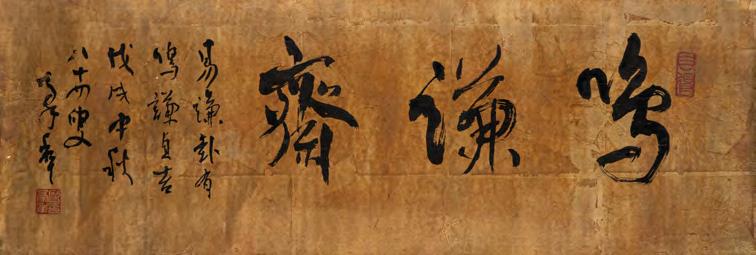 鳴謙齋
易謙卦有
鳴謙貞吉
戊戌中秋
八十四叟